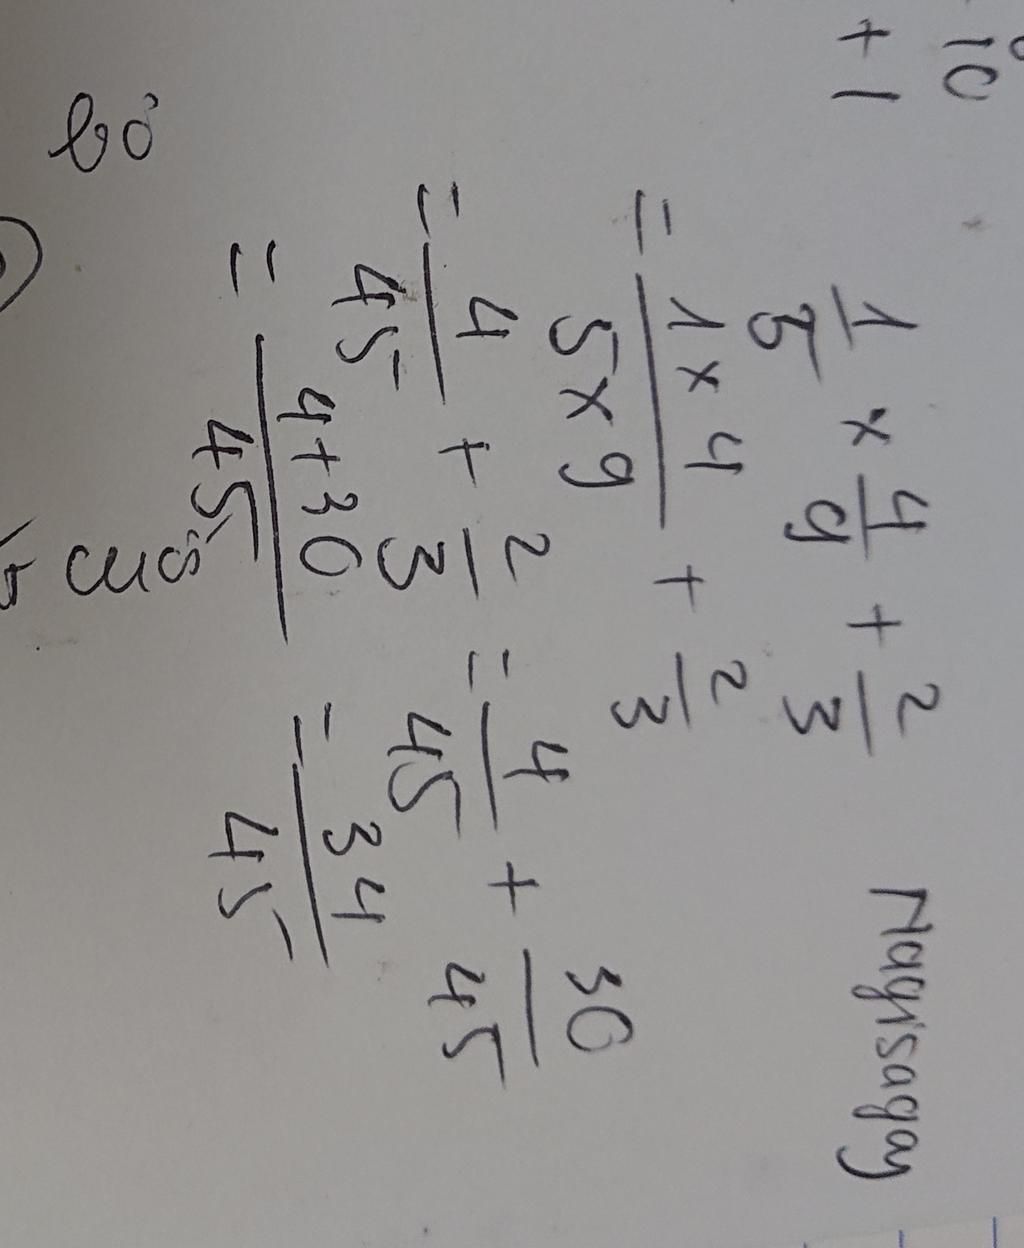 10
+1
1/5 × 4/9 + 2/3
Nagisagay
= (1×4)/(5×9) + 2/3
= 4/45 + 2/3 = 4/45 + 30/45
= (4+30)/45 = 34/45